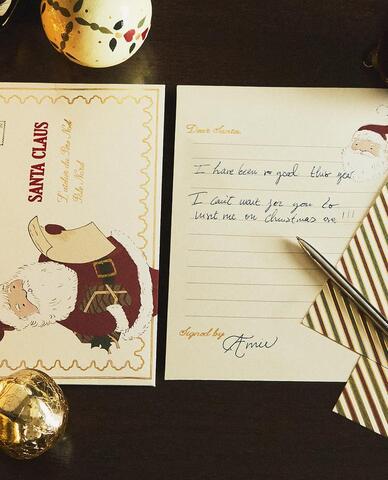 SANTA CLAUS
L'atelier du Père Noël
Pôle Nord
Dear Santa,
I have been so good this year.
I can't wait for you to
visit me on christmas eve !!!
Signed by